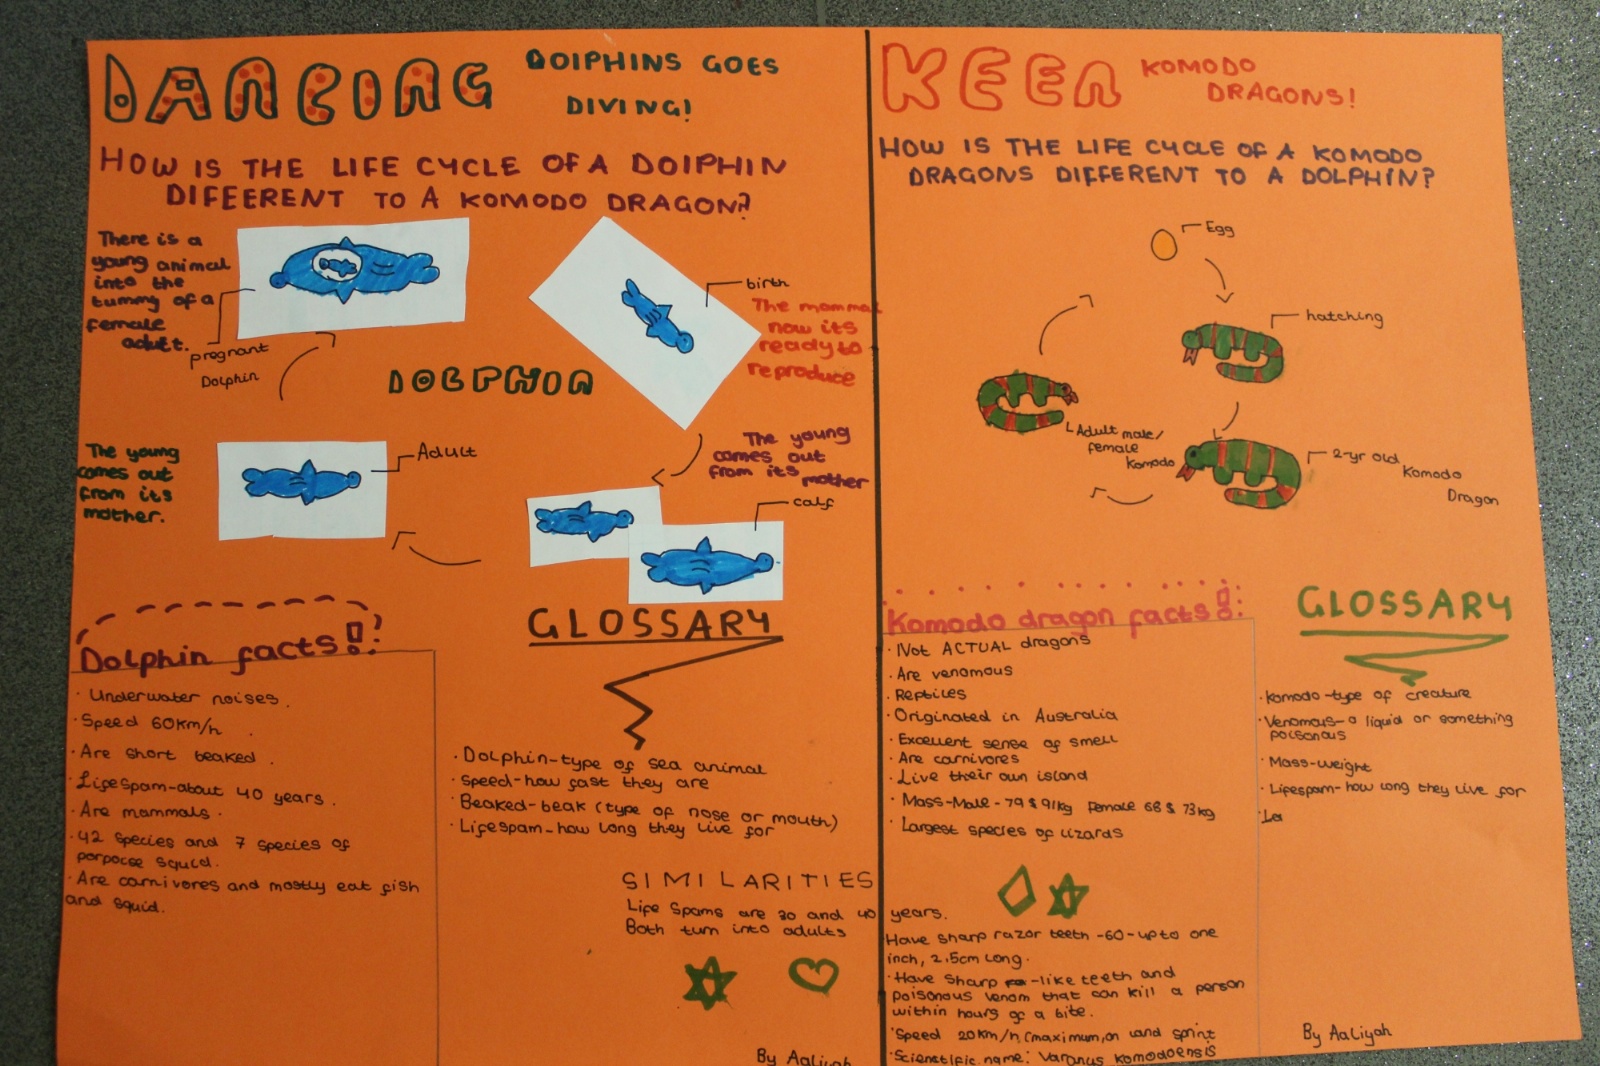 DANCING DOLPHINS GOES
DIVING!
HOW IS THE LIFE CYCLE OF A DOLPHIN
DIFEERENT TO A KOMODO DRAGON?
There is a
young animal
into the
tummy of a
female
adult.
pregnant
Dolphin
birth
The mammal
now its
ready to
reproduce
DOLPHIN
The young
comes out
from its
mother.
Adult
The young
comes out
from its mother
calf
Dolphin facts!
· Underwater noises.
· Speed 60km/h.
· Are short beaked.
· Lifespam-about 40 years.
· Are mammals.
· 42 species and 7 species of
porpoise squid.
· Are carnivores and mostly eat fish
and squid.
GLOSSARY
· Dolphin-type of sea animal
· Speed-how fast they are
· Beaked-beak (type of nose or mouth)
· Lifespam-how long they live for
SIMILARITIES
Life Spams are 30 and 40 years.
Both turn into adults
By Aaliyah
KEEN KOMODO
DRAGONS!
HOW IS THE LIFE CYCLE OF A KOMODO
DRAGONS DIFFERENT TO A DOLPHIN?
Egg
hatching
Adult male/
female
Komodo
2-yr old Komodo
Dragon
Komodo dragon facts!
· Not ACTUAL dragons
· Are venomous
· Reptiles
· Originated in Australia
· Excellent sense of smell
· Are carnivores
· Live their own island
· Mass-Male-79 $ 91kg Female 68 $ 73kg
· Largest species of lizards
Have sharp razor teeth -60-up to one
inch, 2.5cm long.
· Have sharp -like teeth and
poisonous venom that can kill a person
within hours of a bite.
· Speed 20km/h (maximum, on land sprint
· Scienctific name: Varanus komodoensis
GLOSSARY
· Komodo-type of creature
· Venomous-a liquid or something
poisonous
· Mass-weight
· Lifespam-how long they live for
· La
By Aaliyah